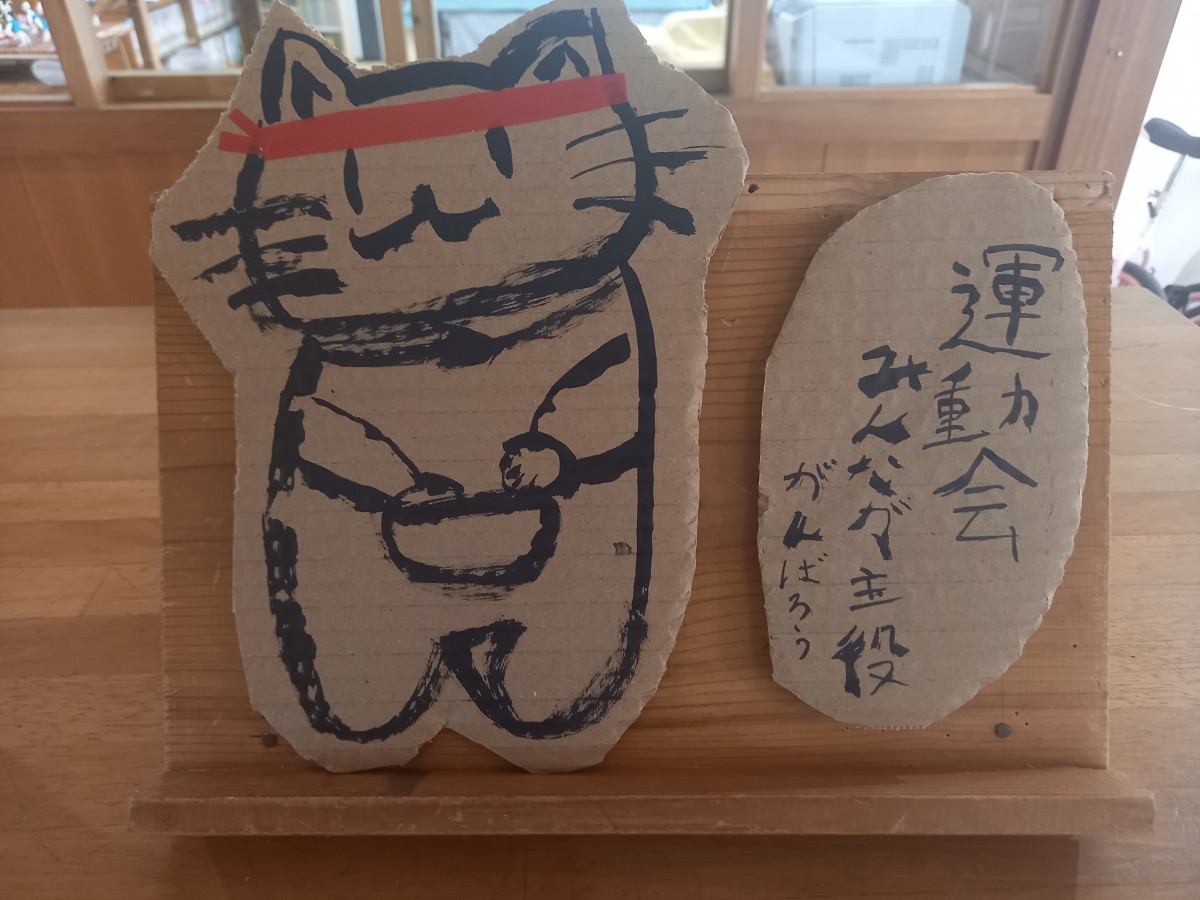 運動会
みんなが主役
がんばろう